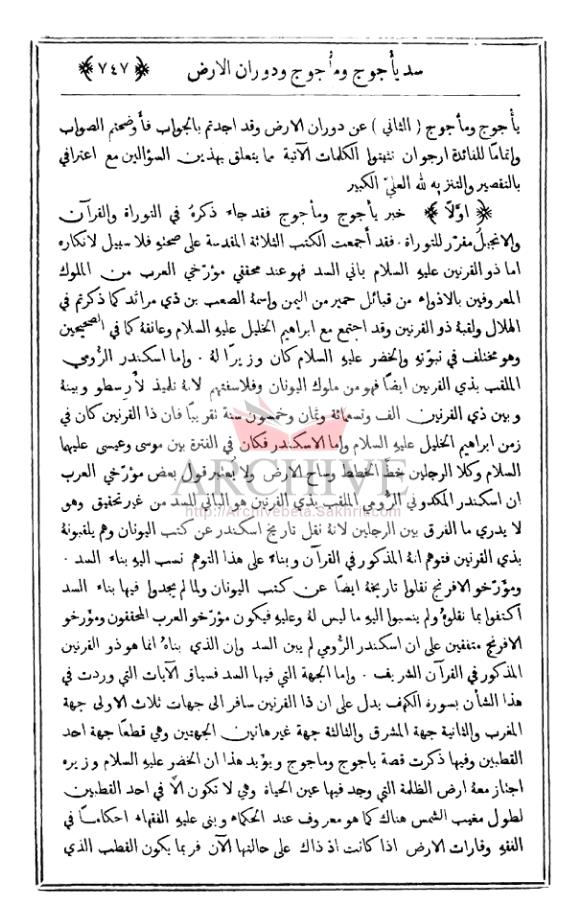 سد يأجوج ومأجوج ودوران الارض ﴿٧٤٧﴾
يأجوج ومأجوج ( الثاني ) عن دوران الارض وقد اجدتم بالجواب فأ وضحتم الصواب
واتمامًا للفائدة ارجو ان تثبتوا الكلمات الآتية مما يتعلق بهذين السؤالين مع اعترافي
بالتقصير والتنزيه لله العليّ الكبير
﴿ اوَّلاً ﴾ خبر يأجوج ومأجوج فقد جاء ذكرهُ في التوراة والقرآن
والانجيلُ مقرّر للتوراة . فقد أجمعت الكتب الثلاثة المقدسة على صحته فلا سبيل لانكاره
اما ذو القرنين عليهِ السلام باني السد فهو عند محققي مؤرّخي العرب من الملوك
المعروفين بالاذواء من قبائل حمير من اليمن واسمهُ الصعب بن ذي مراثد كما ذكرتم في
الهلال ولقبهُ ذو القرنين وقد اجتمع مع ابراهيم الخليل عليهِ السلام وعانقهُ كما في الصحيحين
وهو مختلف في نبوَّتهِ والخضر عليهِ السلام كان وزيرًا لهُ . واما اسكندر الرُّومي
الملقب بذي القرنين ايضًا فهو من ملوك اليونان وفلاسفتهم لانهُ تلميذ لأرسطو وبينهُ
وبين ذي القرنين الف وتسعمائة وثمان وخمسون سنة تقريبًا فان ذا القرنين كان في
زمن ابراهيم الخليل عليهِ السلام واما الاسكندر فكان في الفترة بين موسى وعيسى عليهما
السلام وكلا الرجلين خطَّ الخطط وساح الارض ولا يُعتبر قول بعض مؤرّخي العرب
ان اسكندر المكدوني الرُّومي الملقب بذي القرنين هو الباني للسد من غير تحقيق وهو
لا يدري ما الفرق بين الرجلين لانهُ نقل تاريخ اسكندر عن كتب اليونان وهم يلقبونهُ
بذي القرنين فتوهم انهُ المذكور في القرآن وبناءً على هذا التوهم نسب اليهِ بناء السد .
ومؤرّخو الافرنج نقلوا تاريخهُ ايضًا عن كتب اليونان ولما لم يجدوا فيها بناء السد
اكتفوا بما نقلوهُ ولم ينسبوا اليهِ ما ليس لهُ وعليهِ فيكون مؤرّخو العرب المحققون ومؤرخو
الافرنج متفقين على ان اسكندر الرُّومي لم يبن السد وان الذي بناهُ انما هو ذو القرنين
المذكور في القرآن الشريف . واما الجهة التي فيها السد فسياق الآيات التي وردت في
هذا الشأن بسورة الكهف يدل على ان ذا القرنين سافر الى جهات ثلاث الاولى جهة
المغرب والثانية جهة المشرق والثالثة جهة غير هاتين الجهتين وهي قطعًا جهة احد
القطبين وفيها ذكرت قصة ياجوج وماجوج ويؤيد هذا ان الخضر عليهِ السلام وزيره
اجتاز معهُ ارض الظلمة التي وجد فيها عين الحياة وهي لا تكون الاَّ في احد القطبين
لطول مغيب الشمس هناك كما هو معروف عند الحكماء وبنى عليهِ الفقهاء احكامًا في
الفقهِ وقارات الارض اذا كانت اذ ذاك على حالتها الآن فربما يكون القطب الذي
ARCHIVE
http://Archivebeta.Sakhrit.com